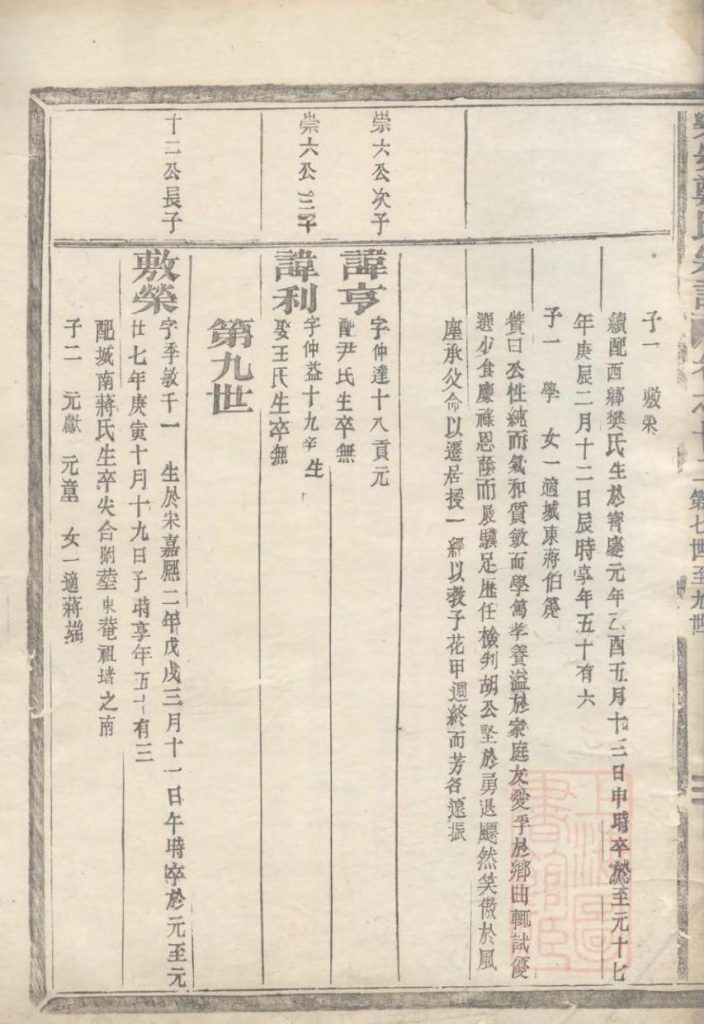 鄭氏宗譜 卷之十二 第七世至九世
子一 敷榮
續配西鄉樊氏生於寶慶元年乙酉五月十三日申時卒於至元十七
年庚辰二月十二日辰時享年五十有六
子一 學 女一適城東蔣伯箎
贊曰公性純而氣和質敏而學篤孝養溢於家庭友愛孚於鄉曲輒試優
選少食廩祿恩蔭而展驥足歷任檢判胡公堅於勇退飄然笑傲於風
塵承父命以遷居授一經以教子花甲週終而芳名遠振
崇六公次子
諱亨
字仲達十八貢元
配尹氏生卒無
崇六公三子
諱利
字仲益十九 生
娶王氏生卒無
第九世
十二公長子
敷榮
字季敏千一 生於宋嘉熙二年戊戌三月十一日午時卒於元至元
廿七年庚寅十月十九日子時享年五十有三
配城南蔣氏生卒失合附塟東菴祖墳之南
子二 元獻 元童 女一適蔣端